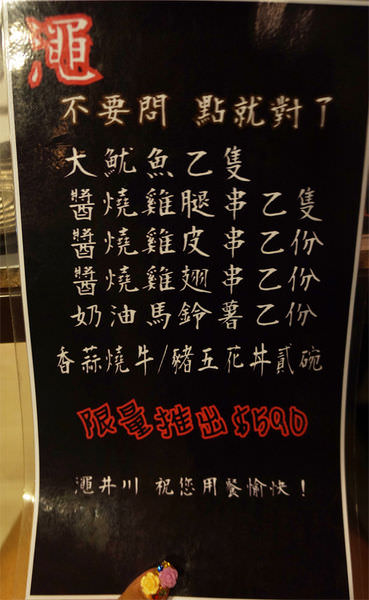 澠
不要問 點就對了
大魷魚乙隻
醬燒雞腿串乙隻
醬燒雞皮串乙份
醬燒雞翅串乙份
奶油馬鈴薯乙份
香蒜燒牛/豬五花丼貳碗
限量推出$590
澠井川 祝您用餐愉快!